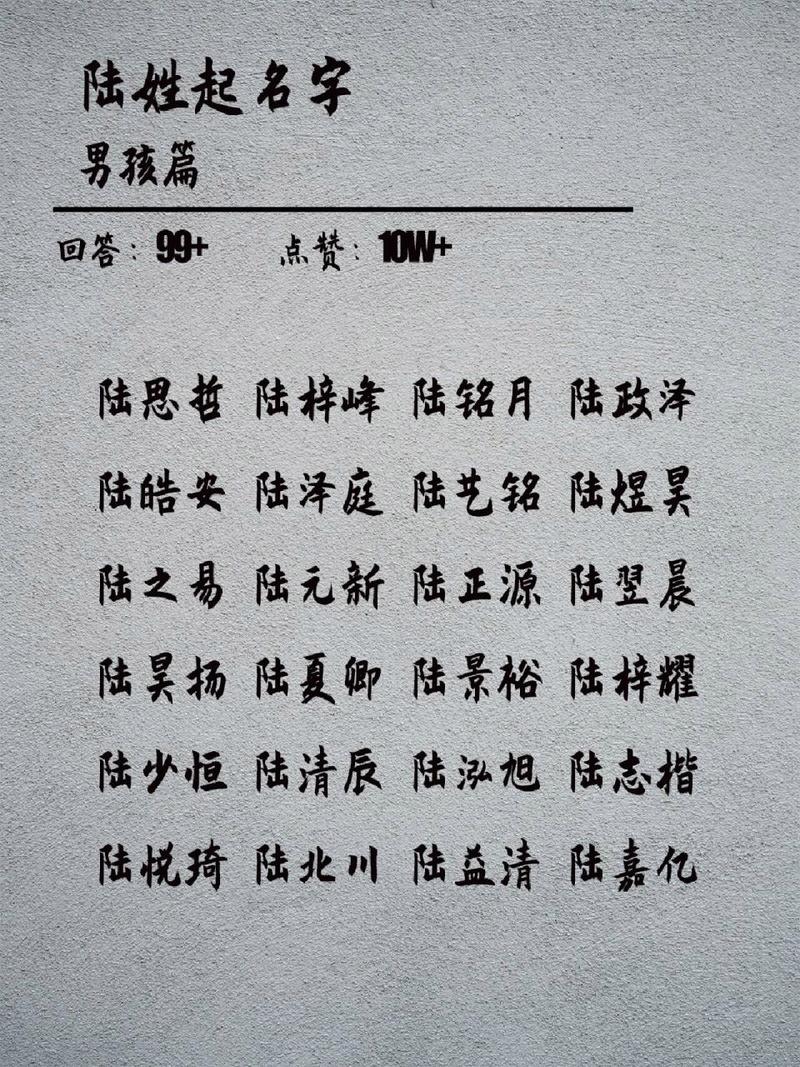 陆姓起名字
男孩篇
回答：99+ 点赞：10W+
陆思哲 陆梓峰 陆铭月 陆政泽
陆皓安 陆泽庭 陆艺铭 陆煜昊
陆之易 陆元新 陆正源 陆翌晨
陆昊扬 陆夏卿 陆景裕 陆梓耀
陆少恒 陆清辰 陆泓旭 陆志楷
陆悦琦 陆北川 陆益清 陆嘉亿